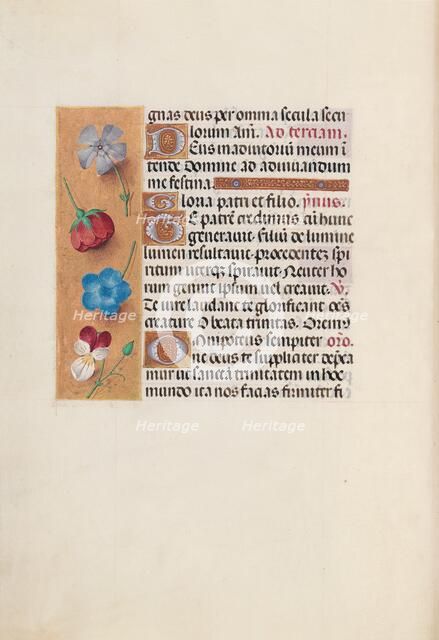 gnas deus per omnia secula secu
lorum Am̄. Ad terciam.
Deus in adiutorium meum ī
tende Domine ad adiuuandum
me festina.
Gloria patri et filio. ȳmus.
Te patrē credimus cū hunc
generauit filiū de lumine
lumen resultauit procedentez spi
ritum uterqz spirauit Neuter ho
rum genuit ipsum uel creauit. V̄.
Te iure laudant te glorificant oēs
creature O beata trinitas. Oremꝰ
Omnipotens sempiter orō.
ne deus te suppliciter depca
mur ut sanctā trinitatem in hoc
mundo ita nos facias firmiter fi
Heritage Heritage
Heritage Heritage
Heritage Heritage